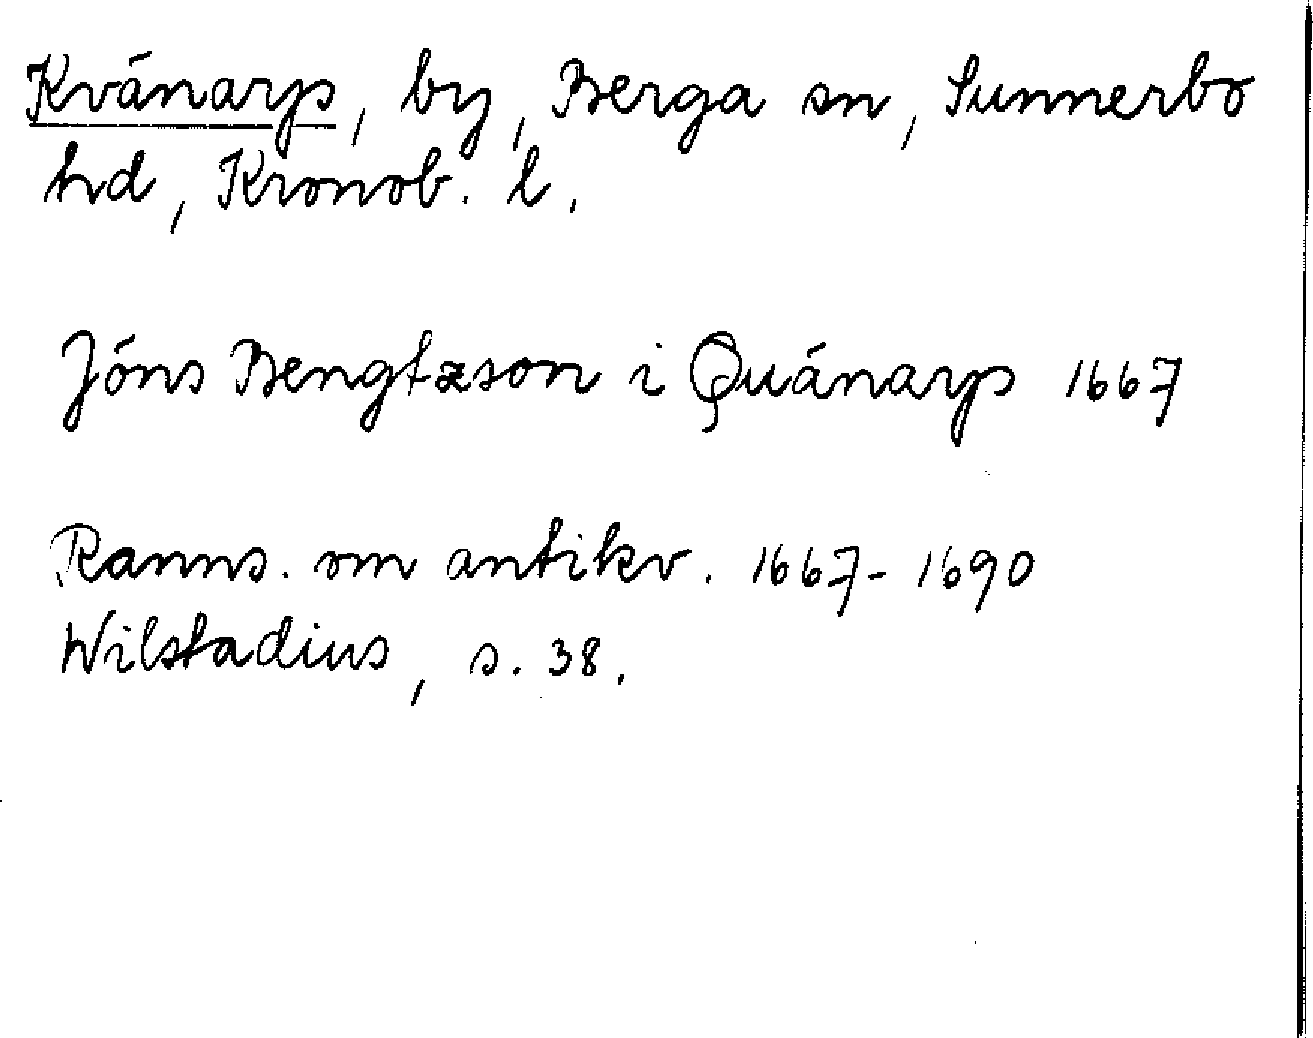 Kvánarp, by, Berga sn, Sunnerbo
hd, Kronob. l.
Jóns Bengtzson i Quánarp 1667
Ranns. om antikv. 1667-1690
Wilstadius, s. 38.